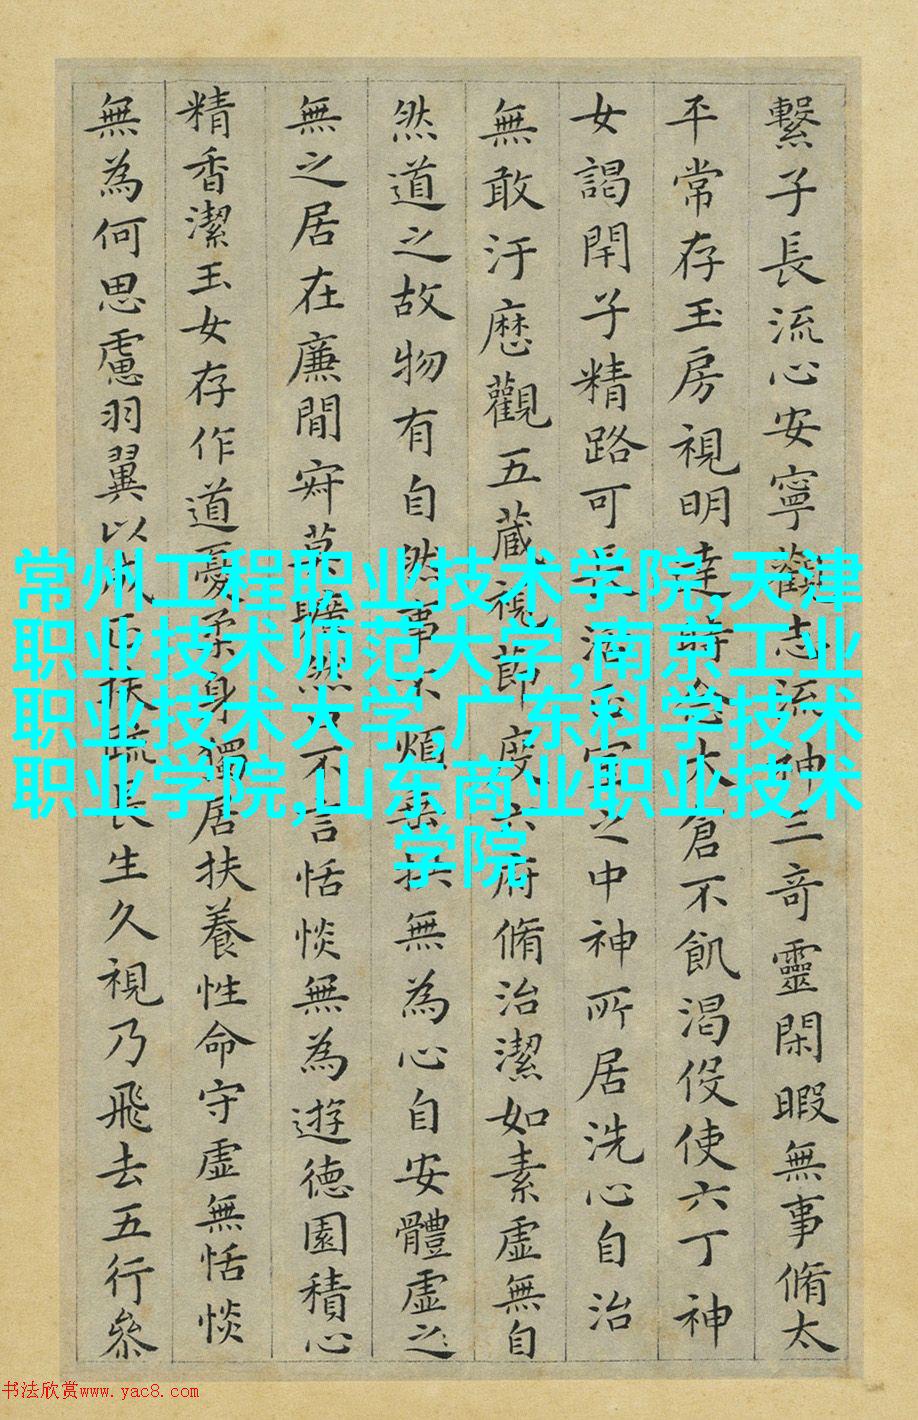 繫子長流心安寧觀志流神三奇靈閑暇無事脩太
平常存玉房視明達時念大倉不飢渴伇使六丁神
女謁閇子精路可長活正室之中神所居洗心自治
無敢汙歷觀五藏視節度六府脩治潔如素虛無自
然道之故物有自然事不煩垂拱無為心自安體虛之
無之居在廉間㝛莫曠然口不言恬惔無為遊德園積心
精香潔玉女存作道憂柔身獨居扶養性命守虛無恬惔
無為何思慮羽翼以成正扶疏長生久視乃飛去五行參
常州工程职业技术学院,天津
职业技术师范大学,南京工业
职业技术大学,广东科学技术
职业学院,山东商业职业技术
学院
书法欣赏www.yac8.com